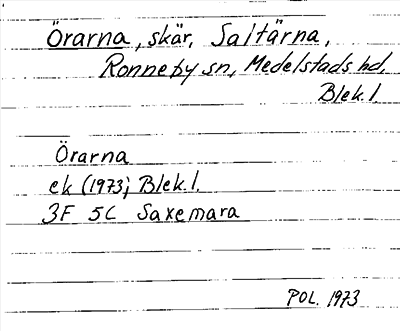 Örarna, skär, Saltärna,
Ronneby sn, Medelstads hd,
Blek. l.
Örarna
ek (1973) Blek. l.
3F 5C Saxemara
POL. 1973